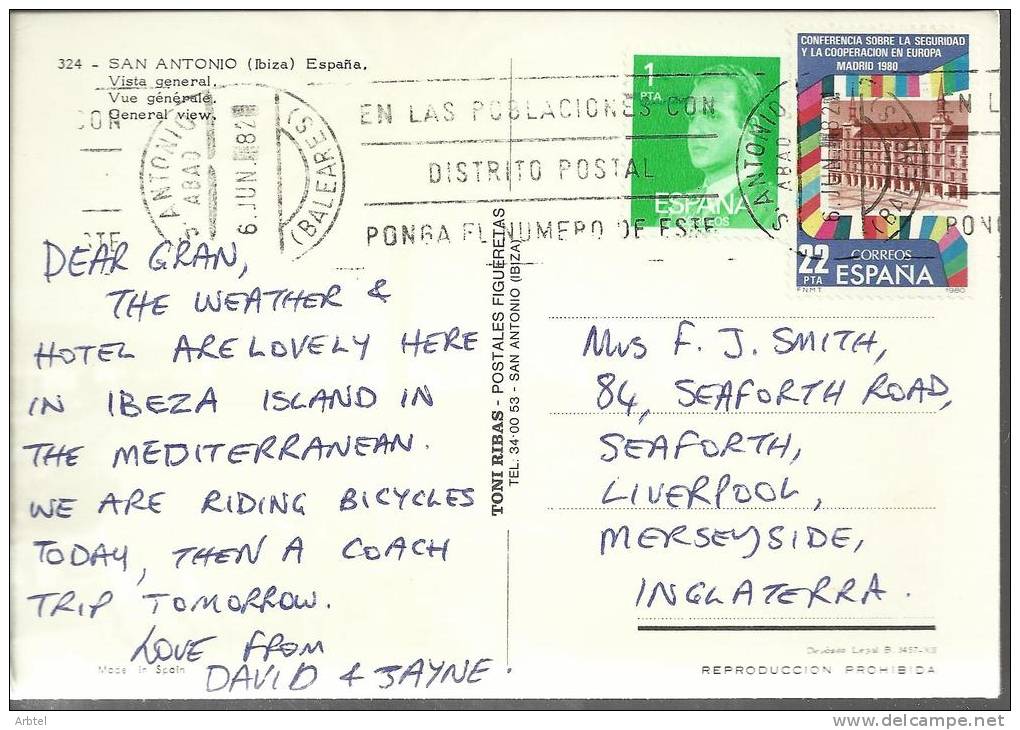 324 - SAN ANTONIO (Ibiza) España.
Vista general.
Vue générale.
General view.
CON
STE
S. ANTONIO ABAD
6 JUN 82
(BALEARES)
EN LAS POBLACIONES CON
DISTRITO POSTAL
PONGA EL NUMERO DE ESTE
1
PTA
ESPAÑA
CORREOS
CONFERENCIA SOBRE LA SEGURIDAD
Y LA COOPERACION EN EUROPA
MADRID 1980
22
PTA
CORREOS
ESPAÑA
FNMT 1980
S. ANTONIO ABAD
6 JUN 82
(BALEARES)
EN L
PON
DEAR GRAN,
THE WEATHER &
HOTEL ARE LOVELY HERE
IN IBEZA ISLAND IN
THE MEDITERRANEAN.
WE ARE RIDING BICYCLES
TODAY, THEN A COACH
TRIP TOMORROW.
LOVE FROM
DAVID & JAYNE.
Made in Spain
TONI RIBAS - POSTALES FIGUERETAS
TEL: 34·00 53 - SAN ANTONIO (IBIZA)
Mrs F. J. SMITH,
84, SEAFORTH ROAD,
SEAFORTH,
LIVERPOOL,
MERSEYSIDE,
INGLATERRA.
Depósito Legal B.
REPRODUCCION PROHIBIDA
Arbtel
www.delcampe.net